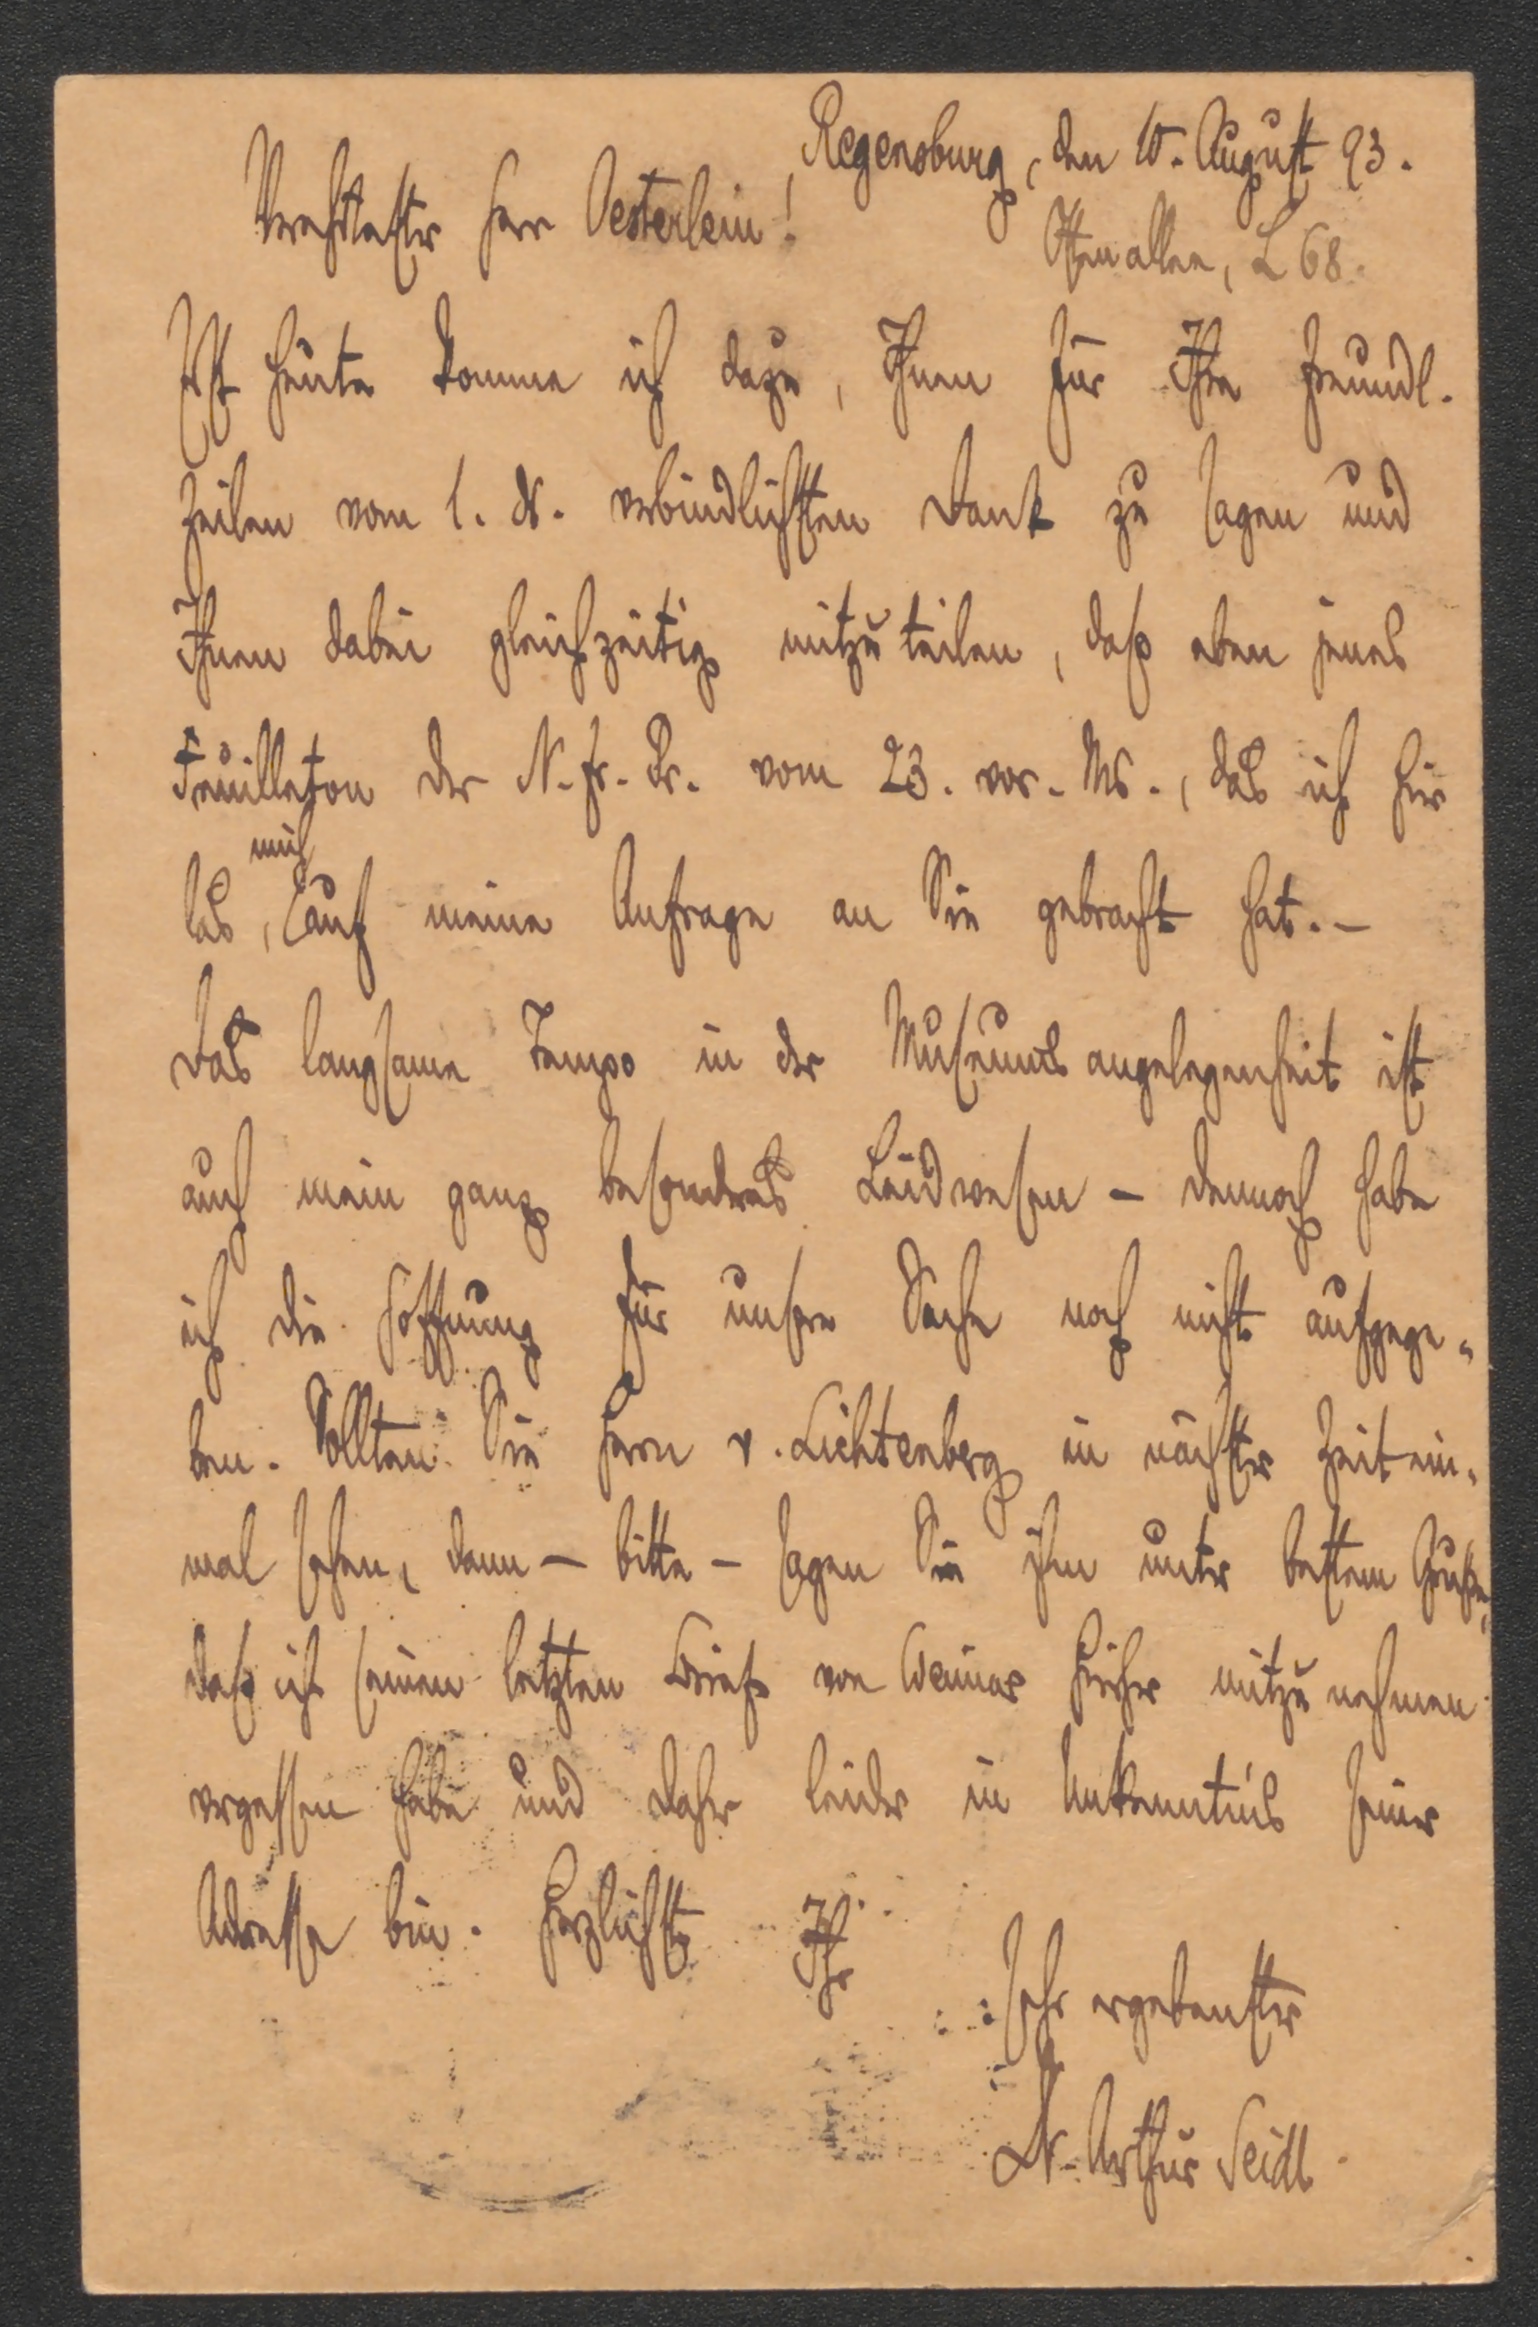 Regensburg, den 10. August 93.
Verehrtester Herr Oesterlein!
Ostenallee, L 68.
Erst heute komme ich dazu, Ihnen für Ihre freundl.
Zeilen vom 1. ds. verbindlichsten Dank zu sagen und
Ihnen dabei gleichzeitig mitzuteilen, daß eben jenes
Feuilleton der N. fr. Pr. vom 23. vor. Ms., das ich hier
las, mich auf meine Anfrage an Sie gebracht hat. —
Das langsame Tempo in der Museumsangelegenheit ist
auch mein ganz besonderes Leidwesen — dennoch habe
ich die Hoffnung für unsere Sache noch nicht aufgege-
ben. Sollten Sie Herrn v. Lichtenberg in nächster Zeit ein-
mal sehen, dann — bitte — sagen Sie ihm unter bestem Gruße,
daß ich seinen letzten Brief von Weimar hieher mitzunehmen
vergessen habe und daher leider in Unkenntnis seiner
Adresse bin. Herzlichst Ihr
sehr ergebenster
Dr. Arthur Seidl.